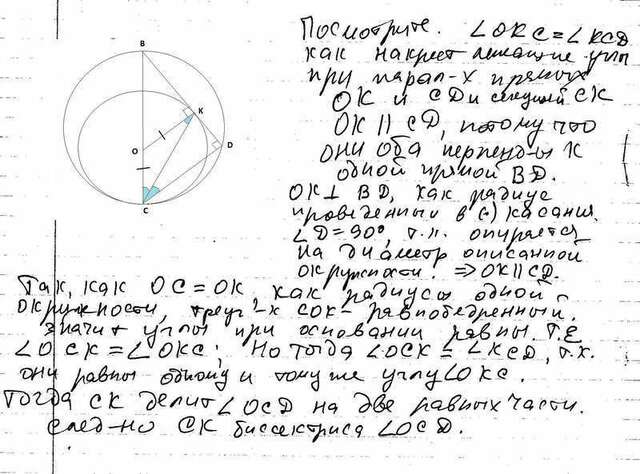 B
K
O
D
C
Посмотрите. ∠OKC=∠KCD
как накрест лежащие углы
при парал-х прямых
OK и CD и секущей CK
OK || CD, потому что
они оба перпенд-ны к
одной прямой BD.
OK⊥ BD, как радиус
проведенный в (·) касания.
∠D=90°, т.к. опирается
на диаметр описанной
окружности! ⇒ OK||CD.
Так, как OC=OK, как радиусы одной
окружности, треуг-к COK- равнобедренный.
значит углы при основании равны. т.е
∠OCK=∠OKC; Но тогда ∠OCK=∠KCD, т.к.
они равны одному и тому же углу ∠OKC.
Тогда CK делит ∠OCD на две равных части.
след-но CK биссектриса ∠OCD.